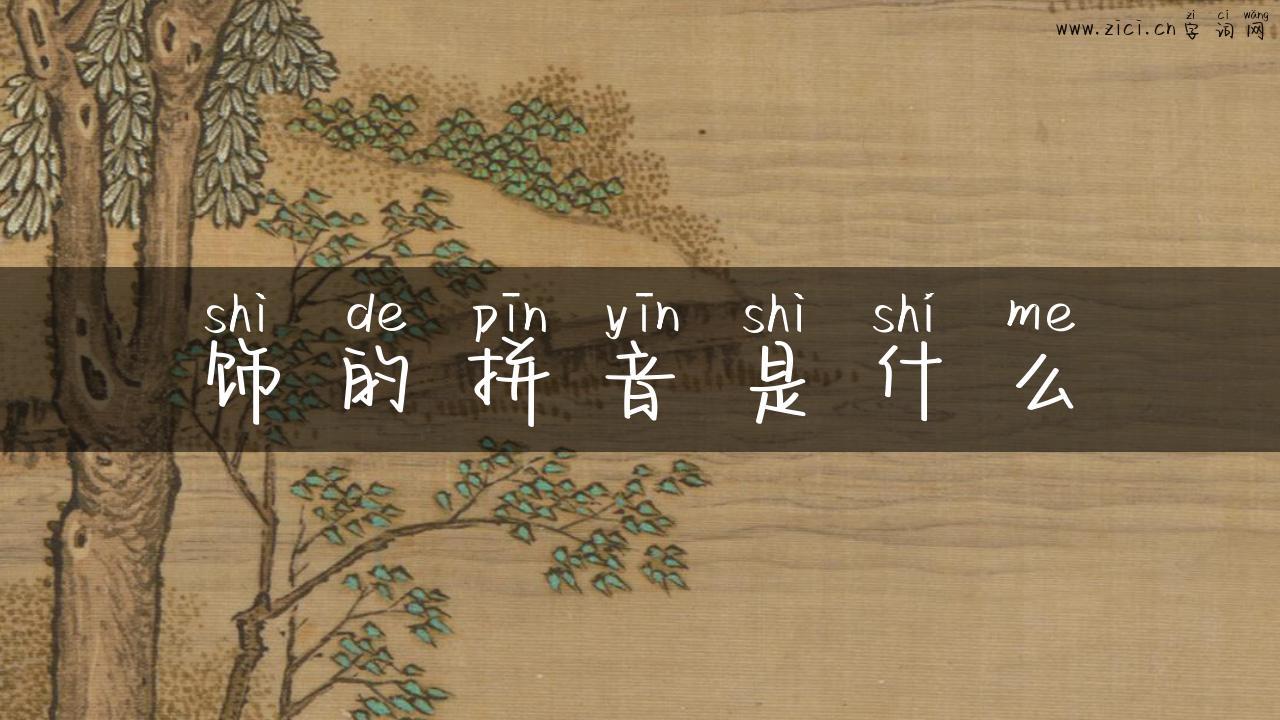 zì cí wǎng
www.zici.cn 字词网
shì de pīn yīn shì shí me
饰的拼音是什么